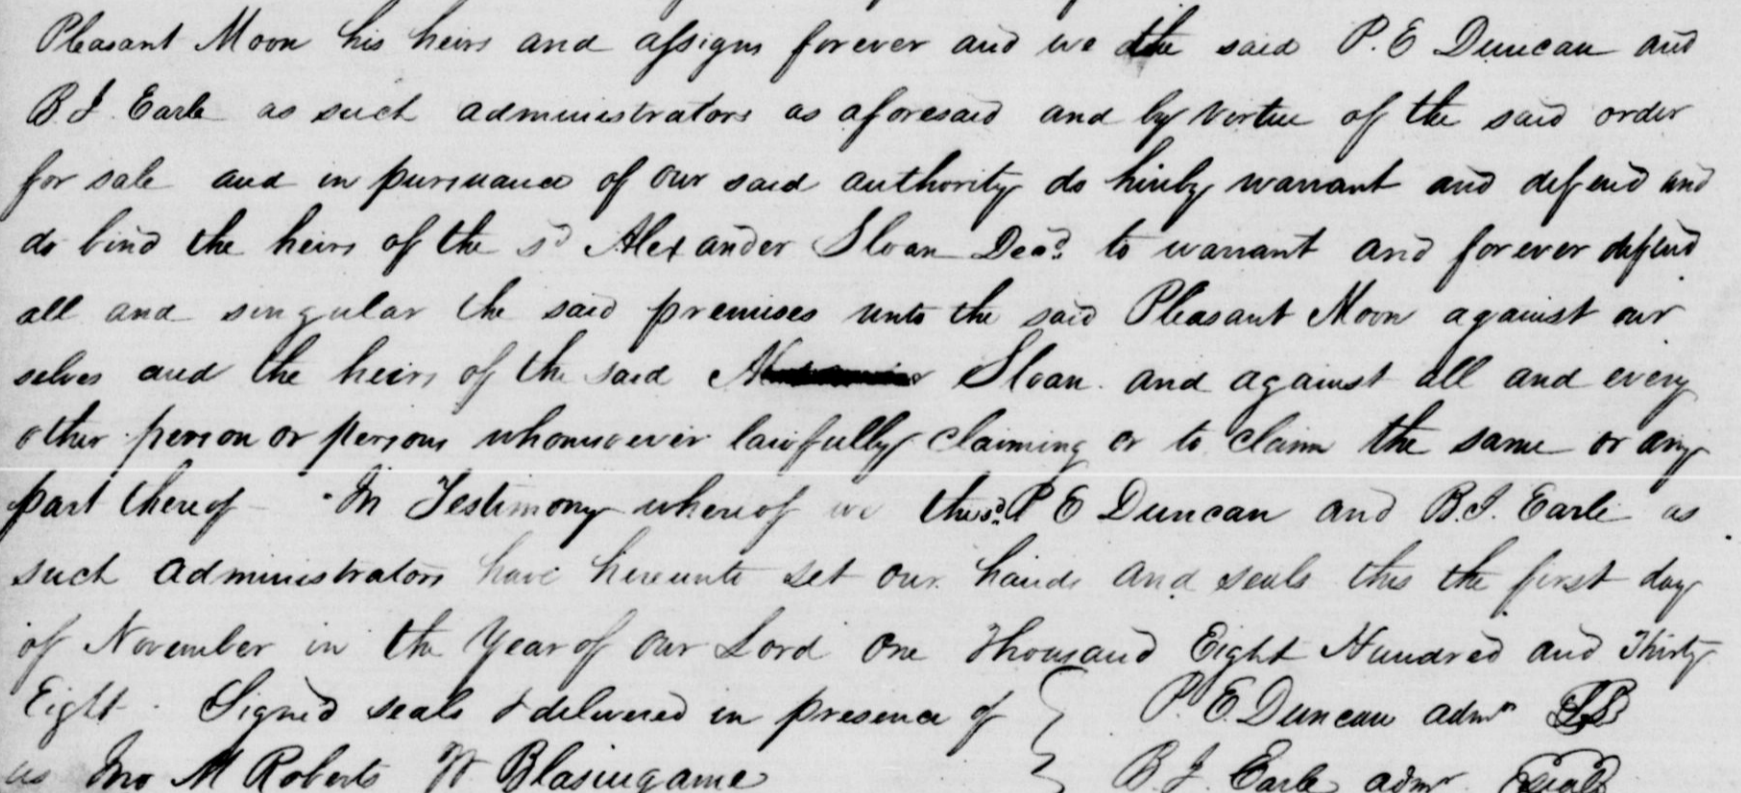 Pleasant Moon his heirs and assigns forever and we the said P. E Duncan and
B. J. Earle as such administrators as aforesaid and by virtue of the said order
for sale and in pursuance of our said authority do hereby warrant and defend and
do bind the heirs of the sd Alexander Sloan Decd. to warrant and forever defend
all and singular the said premises unto the said Pleasant Moon against our
selves and the heirs of the said Sloan. and against all and every
other person or persons whomsoever lawfully claiming or to claim the same or any
part thereof In Testimony whereof we the sd. P E Duncan and B. J. Earle as
such administrators have hereunto set our hands and seals this the first day
of November in the Year of Our Lord One Thousand Eight Hundred and Thirty
Eight. Signed seals & delivered in presence of } P. E. Duncan admr LS
us Jno M Roberts W Blasingame } B. J. Earle admr. Seal